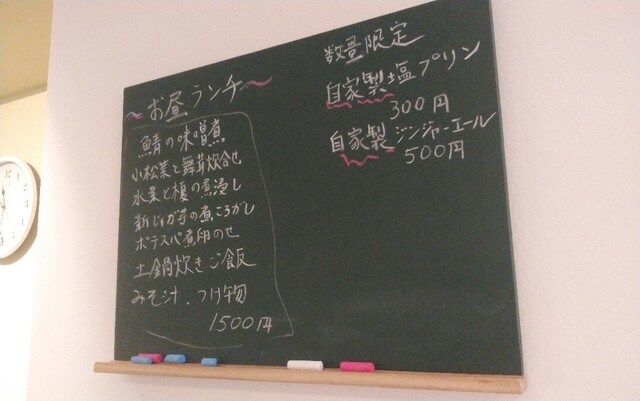 ~お昼ランチ~
鯖の味噌煮
小松菜と舞茸炊合せ
水菜と榎の煮浸し
新じゃが芋の煮ころがし
ポテスパ煮卵のせ
土鍋炊きご飯
みそ汁、つけ物
1500円
数量限定
自家製塩プリン
300円
自家製ジンジャーエール
500円